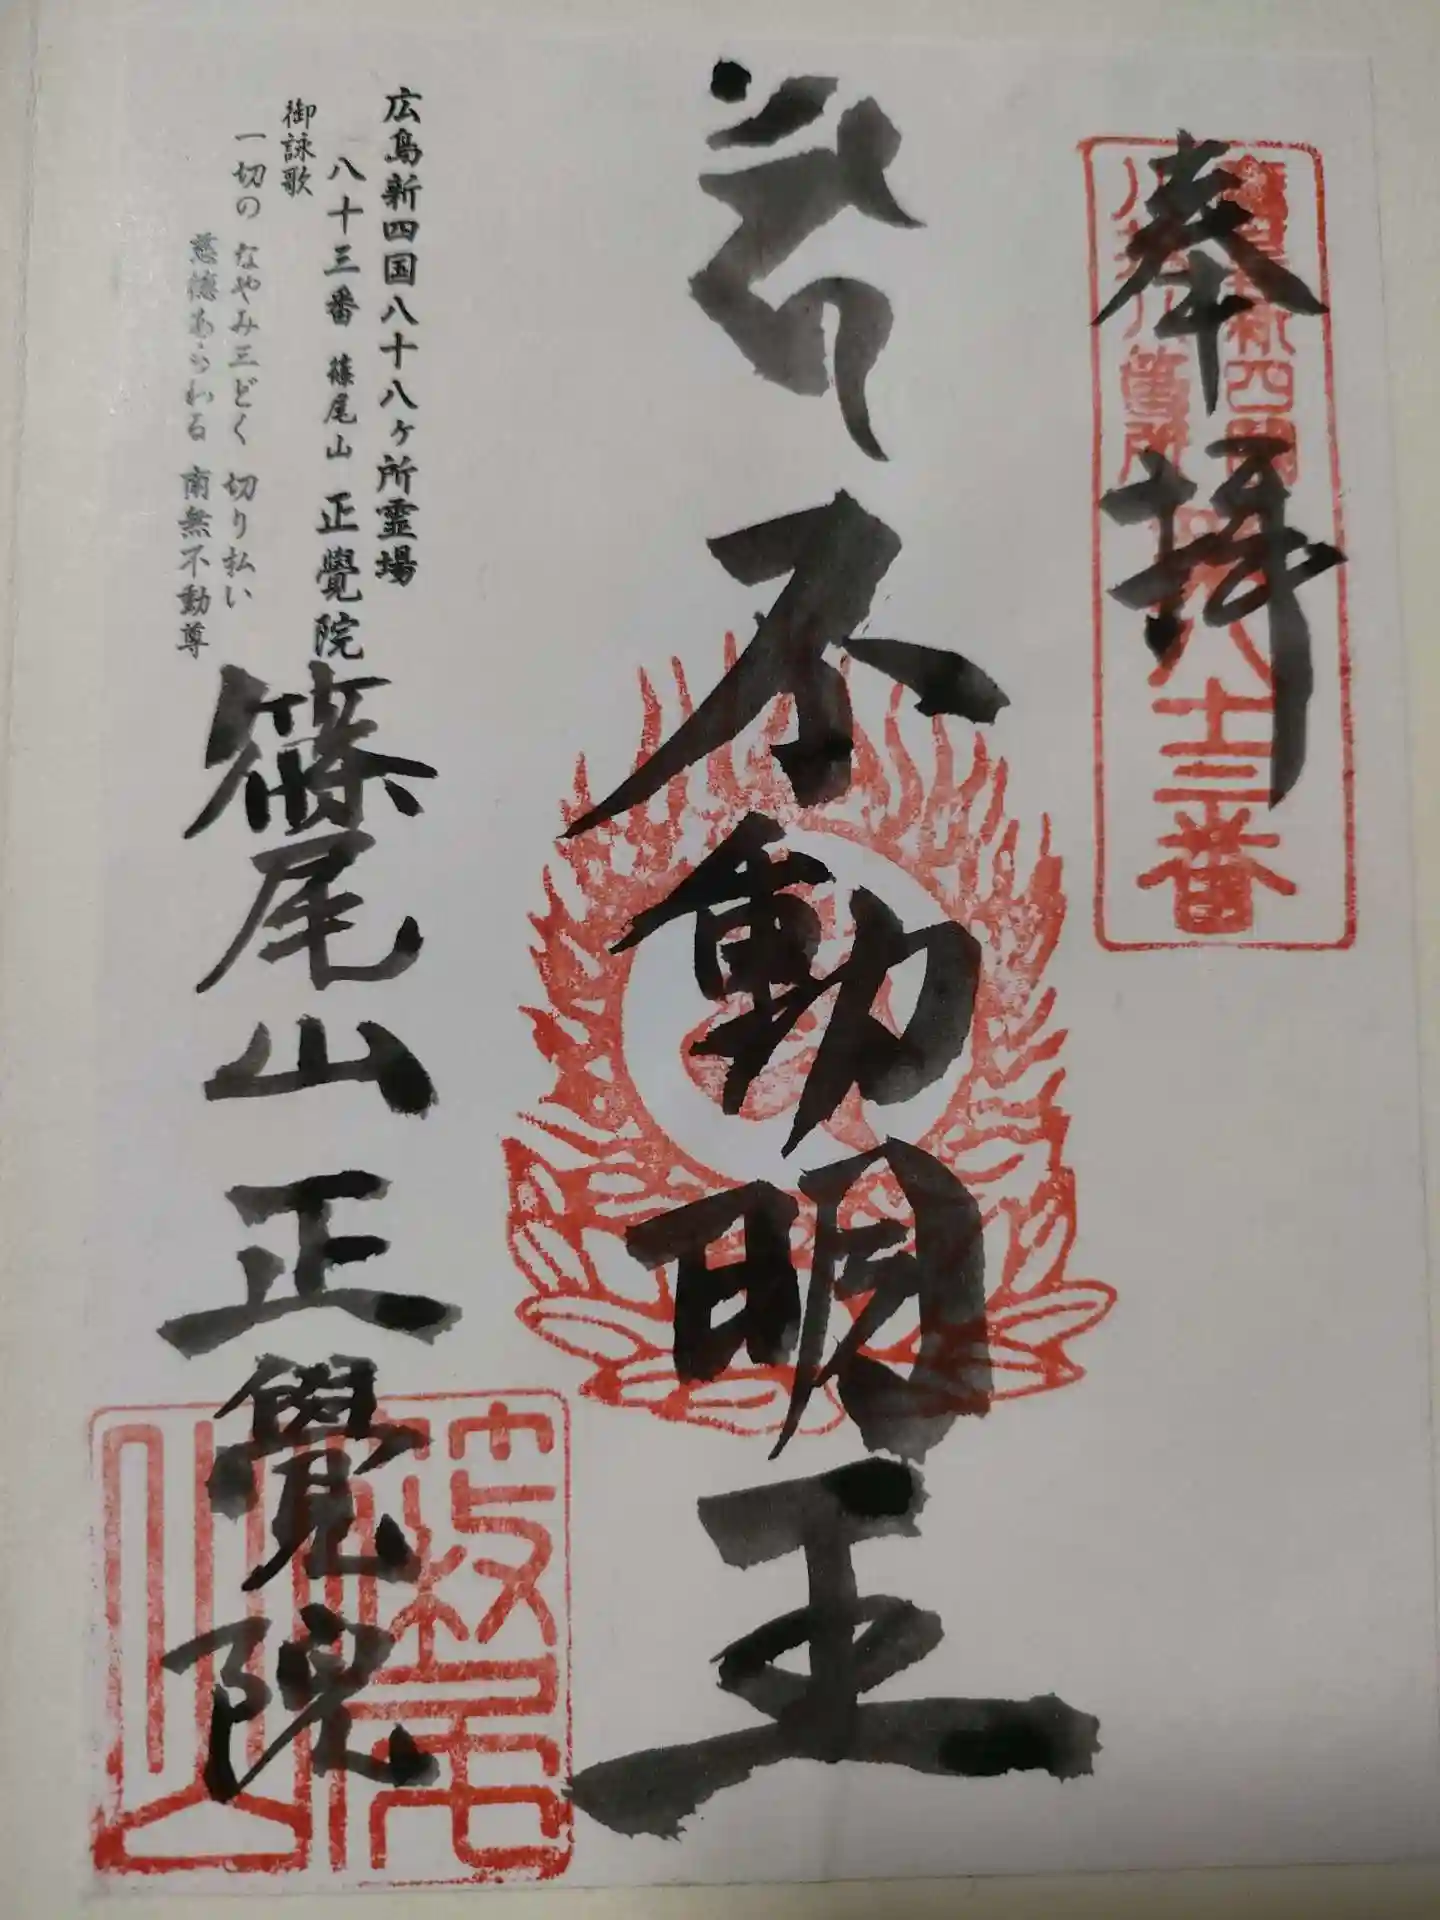 奉拝
八十三番
不動明王
広島新四国八十八ヶ所霊場
八十三番 篠尾山 正覺院
御詠歌
一切の なやみ三どく 切り払い
慈徳あらわる 南無不動尊
篠尾山 正覺院